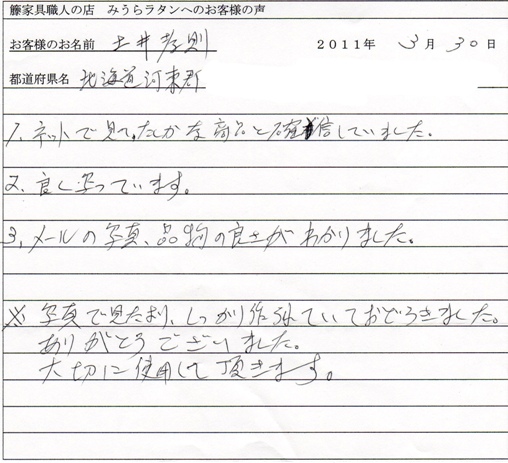 籐家具職人の店　みうらラタンへのお客様の声
お客様のお名前 土井孝則 2011年 3月30日
都道府県名 北海道河東郡
1、ネットで見て、たしかな商品と確信していました。
2、良く写っています。
3、メールの写真、品物の良さがわかりました。
※ 写真で見たより、しっかり作られていておどろきました。
ありがとうございました。
大切に使用して頂きます。